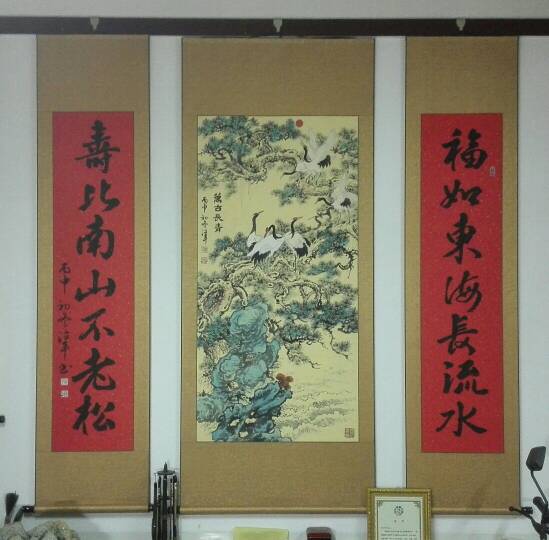 福如東海長流水
萬古長青
丙申初冬
壽比南山不老松
丙申初冬